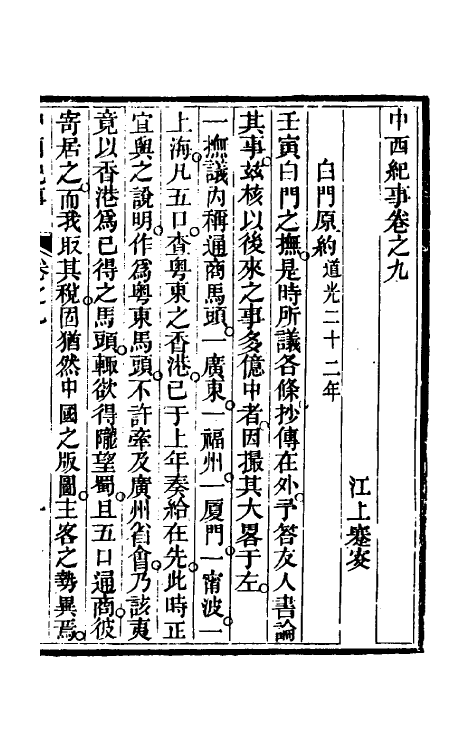 中西紀事卷之九
江上蹇叟
白門原約道光二十二年
壬寅白門之撫是時所議各條抄傳在外予答友人書論
其事玆核以後來之事多億中者因撮其大畧于左
一撫議內稱通商馬頭一廣東一福州一厦門一甯波一
上海凡五口查粤東之香港已于上年奏給在先此時正
宜與之說明作爲粤東馬頭不許牽及廣州省會乃該夷
竟以香港爲已得之馬頭輒欲得隴望蜀且五口通商彼
寄居之而我取其稅固猶然中國之版圖主客之勢異焉
中西紀事
卷之九
一